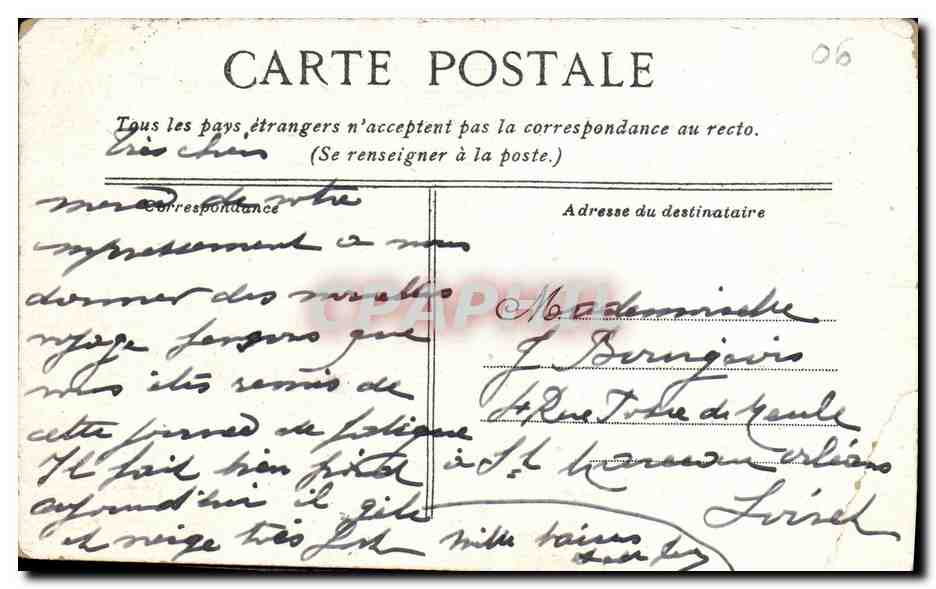 06
CARTE POSTALE
Tous les pays étrangers n'acceptent pas la correspondance au recto.
(Se renseigner à la poste.)
Correspondance
Adresse du destinataire
très chers
merci de votre
empressement a nous
donner des nouvelles
voyage que
vous êtes remis de
cette journée de fatigue
Il fait bien froid
aujourd'hui il gèle
et neige très fort Mille baises
Mademoiselle
J Bourgeois
Rue de
à St Marceau Orléans
Loiret
CPAPHIL